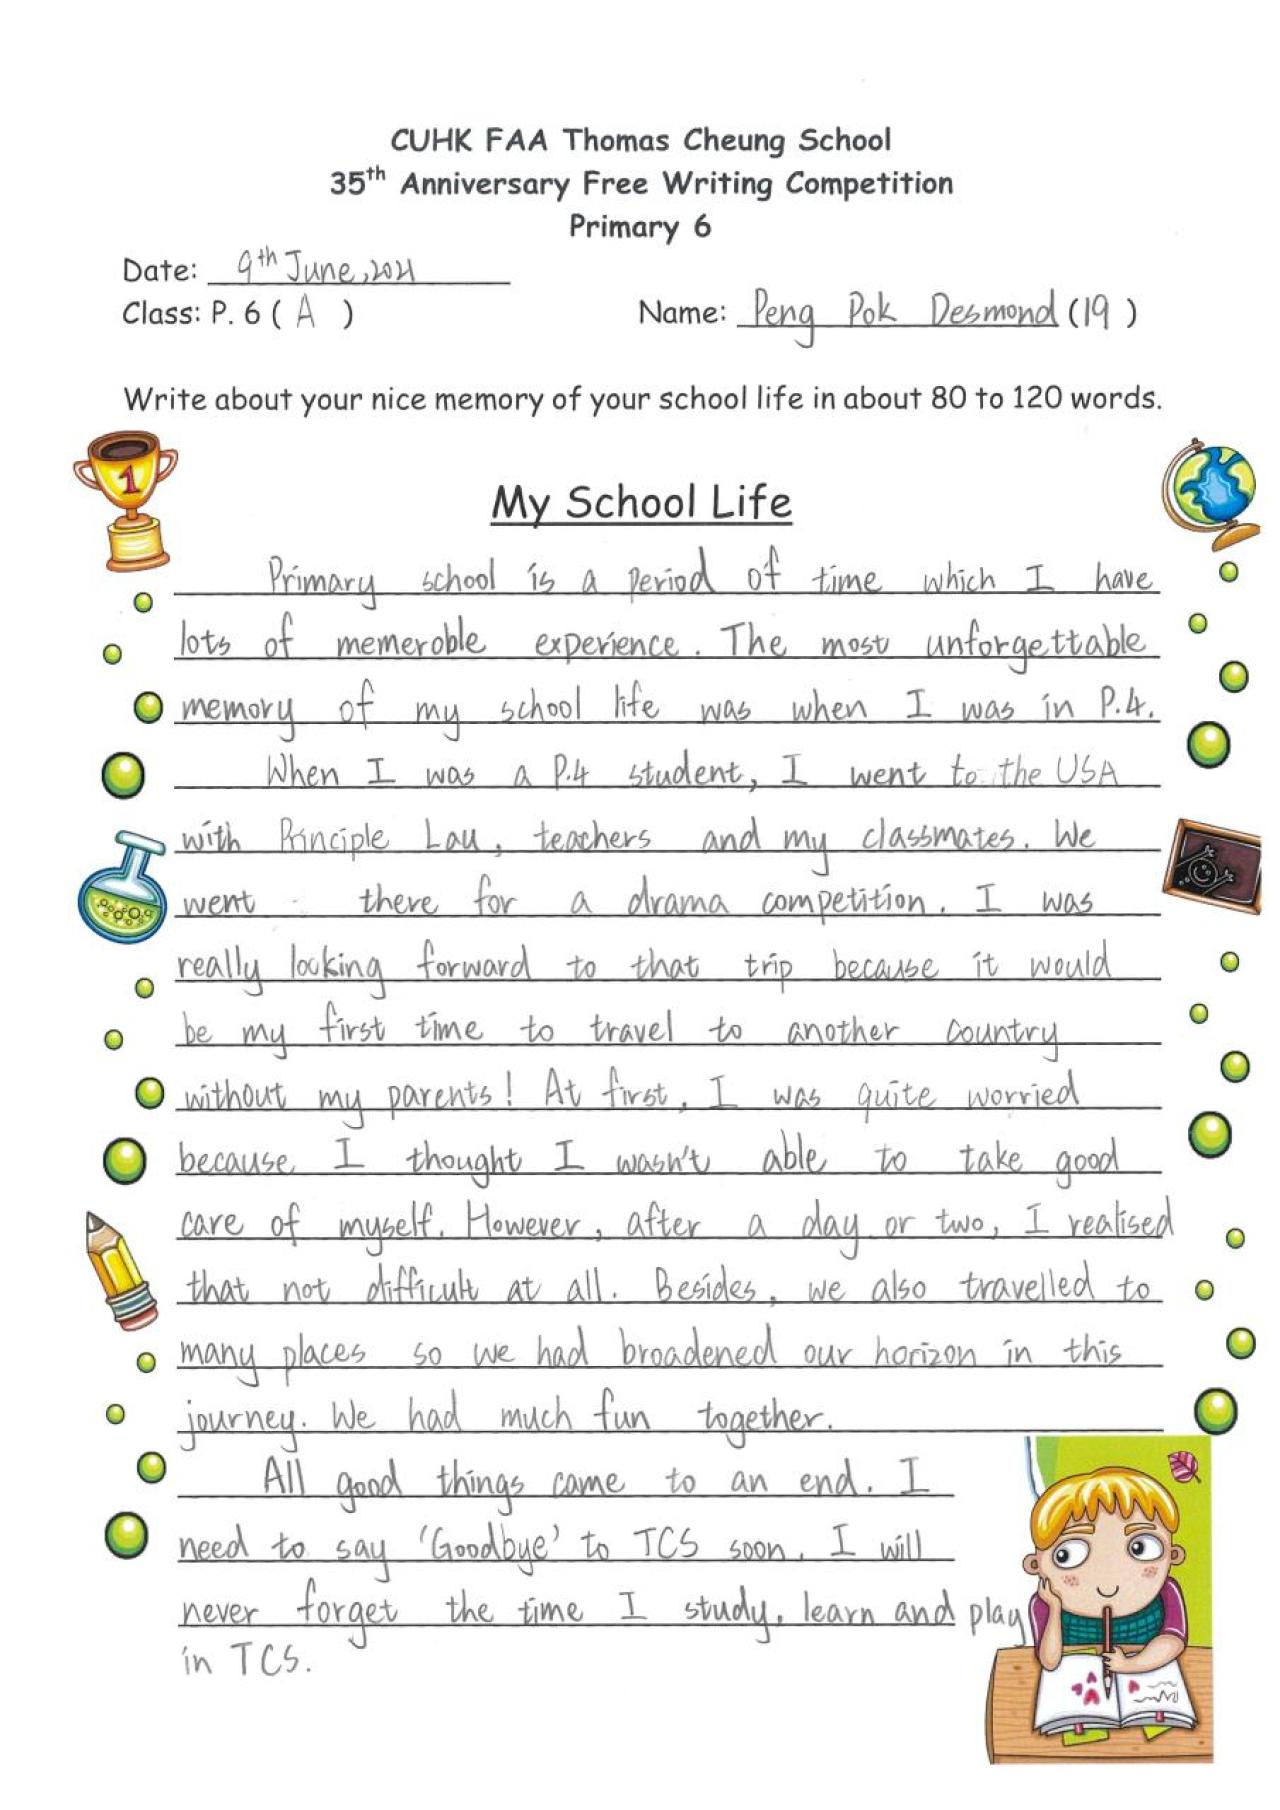 CUHK FAA Thomas Cheung School
35th Anniversary Free Writing Competition
Primary 6
Date: 9th June, 2021
Class: P. 6 ( A )
Name: Peng Pok Desmond (19 )
Write about your nice memory of your school life in about 80 to 120 words.
1
My School Life
Primary school is a period of time which I have
lots of memeroble experience. The most unforgettable
memory of my school life was when I was in P.4.
When I was a P.4 student, I went to the USA
with Principle Lau, teachers and my classmates. We
went there for a drama competition. I was
really looking forward to that trip because it would
be my first time to travel to another country
without my parents! At first, I was quite worried
because I thought I wasn't able to take good
care of myself. However, after a day or two, I realised
that not difficult at all. Besides, we also travelled to
many places so we had broadened our horizon in this
journey. We had much fun together.
All good things come to an end. I
need to say 'Goodbye' to TCS soon. I will
never forget the time I study, learn and play
in TCS.